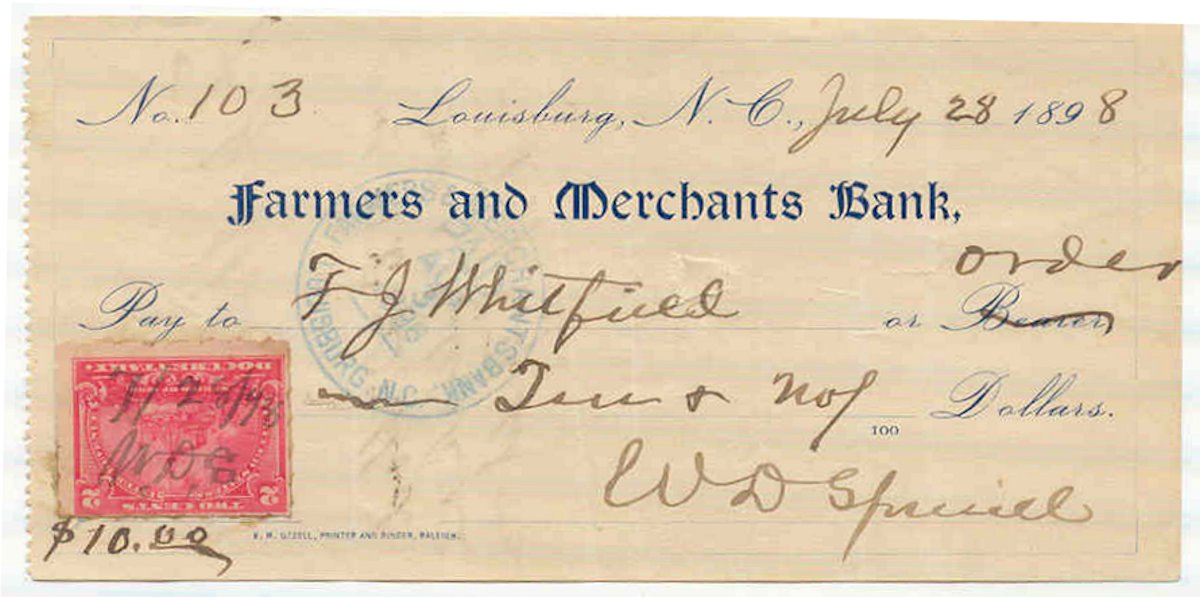 No. 103 Louisburg, N. C., July 28 1898
Farmers and Merchants Bank,
order
Pay to F J Whitfield or Bearer,
Ten & No/100 Dollars.
W D Spruill
$10.00
PRINTER AND BINDER, RALEIGH.
FARMERS & MERCHANTS BANK
LOUISBURG, N.C.
DOCUMENTARY
7/28/98
TWO CENTS
2 2